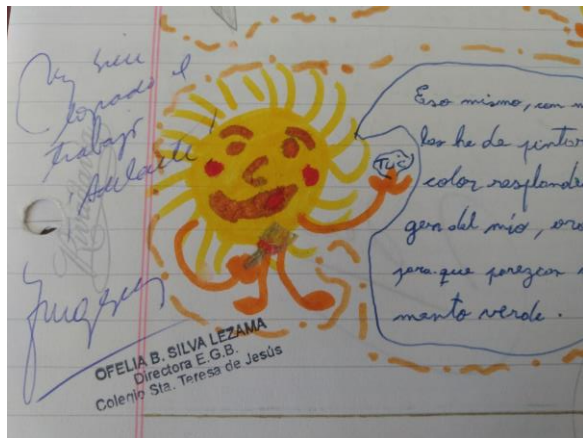 Muy bien
logrado el
trabajo
Adelante!
Rivadavia
OFELIA B. SILVA LEZAMA
Directora E.G.B.
Colegio Sta. Teresa de Jesús
Eso mismo, con
los he de pintar
color resplande
gen del mío, oro
para que parezcan
mento verde.